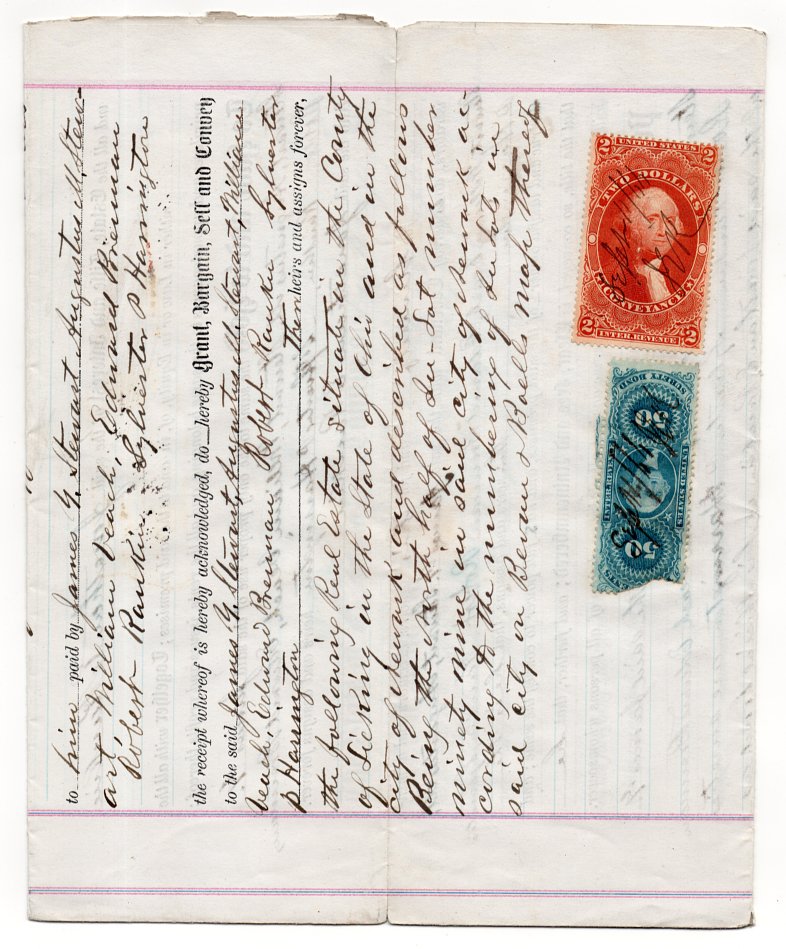 to him paid by James G. Stewart, Augustus M. Stew-
art William Veach, Edward Brennan
Robert Rankin Sylvester P Harrington
the receipt whereof is hereby acknowledged, do hereby Grant, Bargain, Sell and Convey
to the said James G. Stewart, Augustus M. Stewart, William
Veach, Edward Brennan Robert Rankin Sylvester
P Harrington Their heirs and assigns forever,
the following Real Estate situate in the County
of Licking in the State of Ohio and in the
city of Newark and described as follows
Being the North half of In-Lot number
ninety nine in said city of Newark ac-
cording to the numbering of In Lots in
said city in Bevan & map thereof
2 UNITED STATES 2
TWO DOLLARS
CONVEYANCE
2 INTER. REVENUE 2
Sept
INTER. REVENUE
50
UNITED STATES
SURETY BOND
Sept